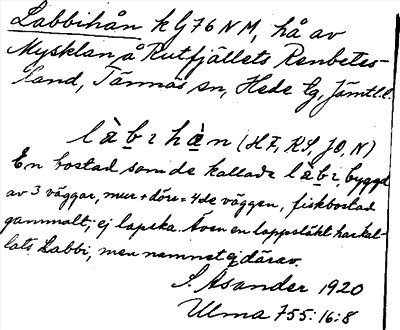 Labbihån k G76 NM, hå av
Mysklan å Rutfjällets Renbetes-
land, Tännäs sn, Hede tg, Jämtl. l.
làbɪhàn (HF, KS, JO, N)
En bostad som de kallade làbɪ, byggd
av 3 väggar, mur + dörr = 4de väggen, fiskbostad
gammalt, ej lapska. Även en lappsläkt har kal-
lats Labbi, men namnet ej därav.
S. Asander 1920
Ulma 755:16:8